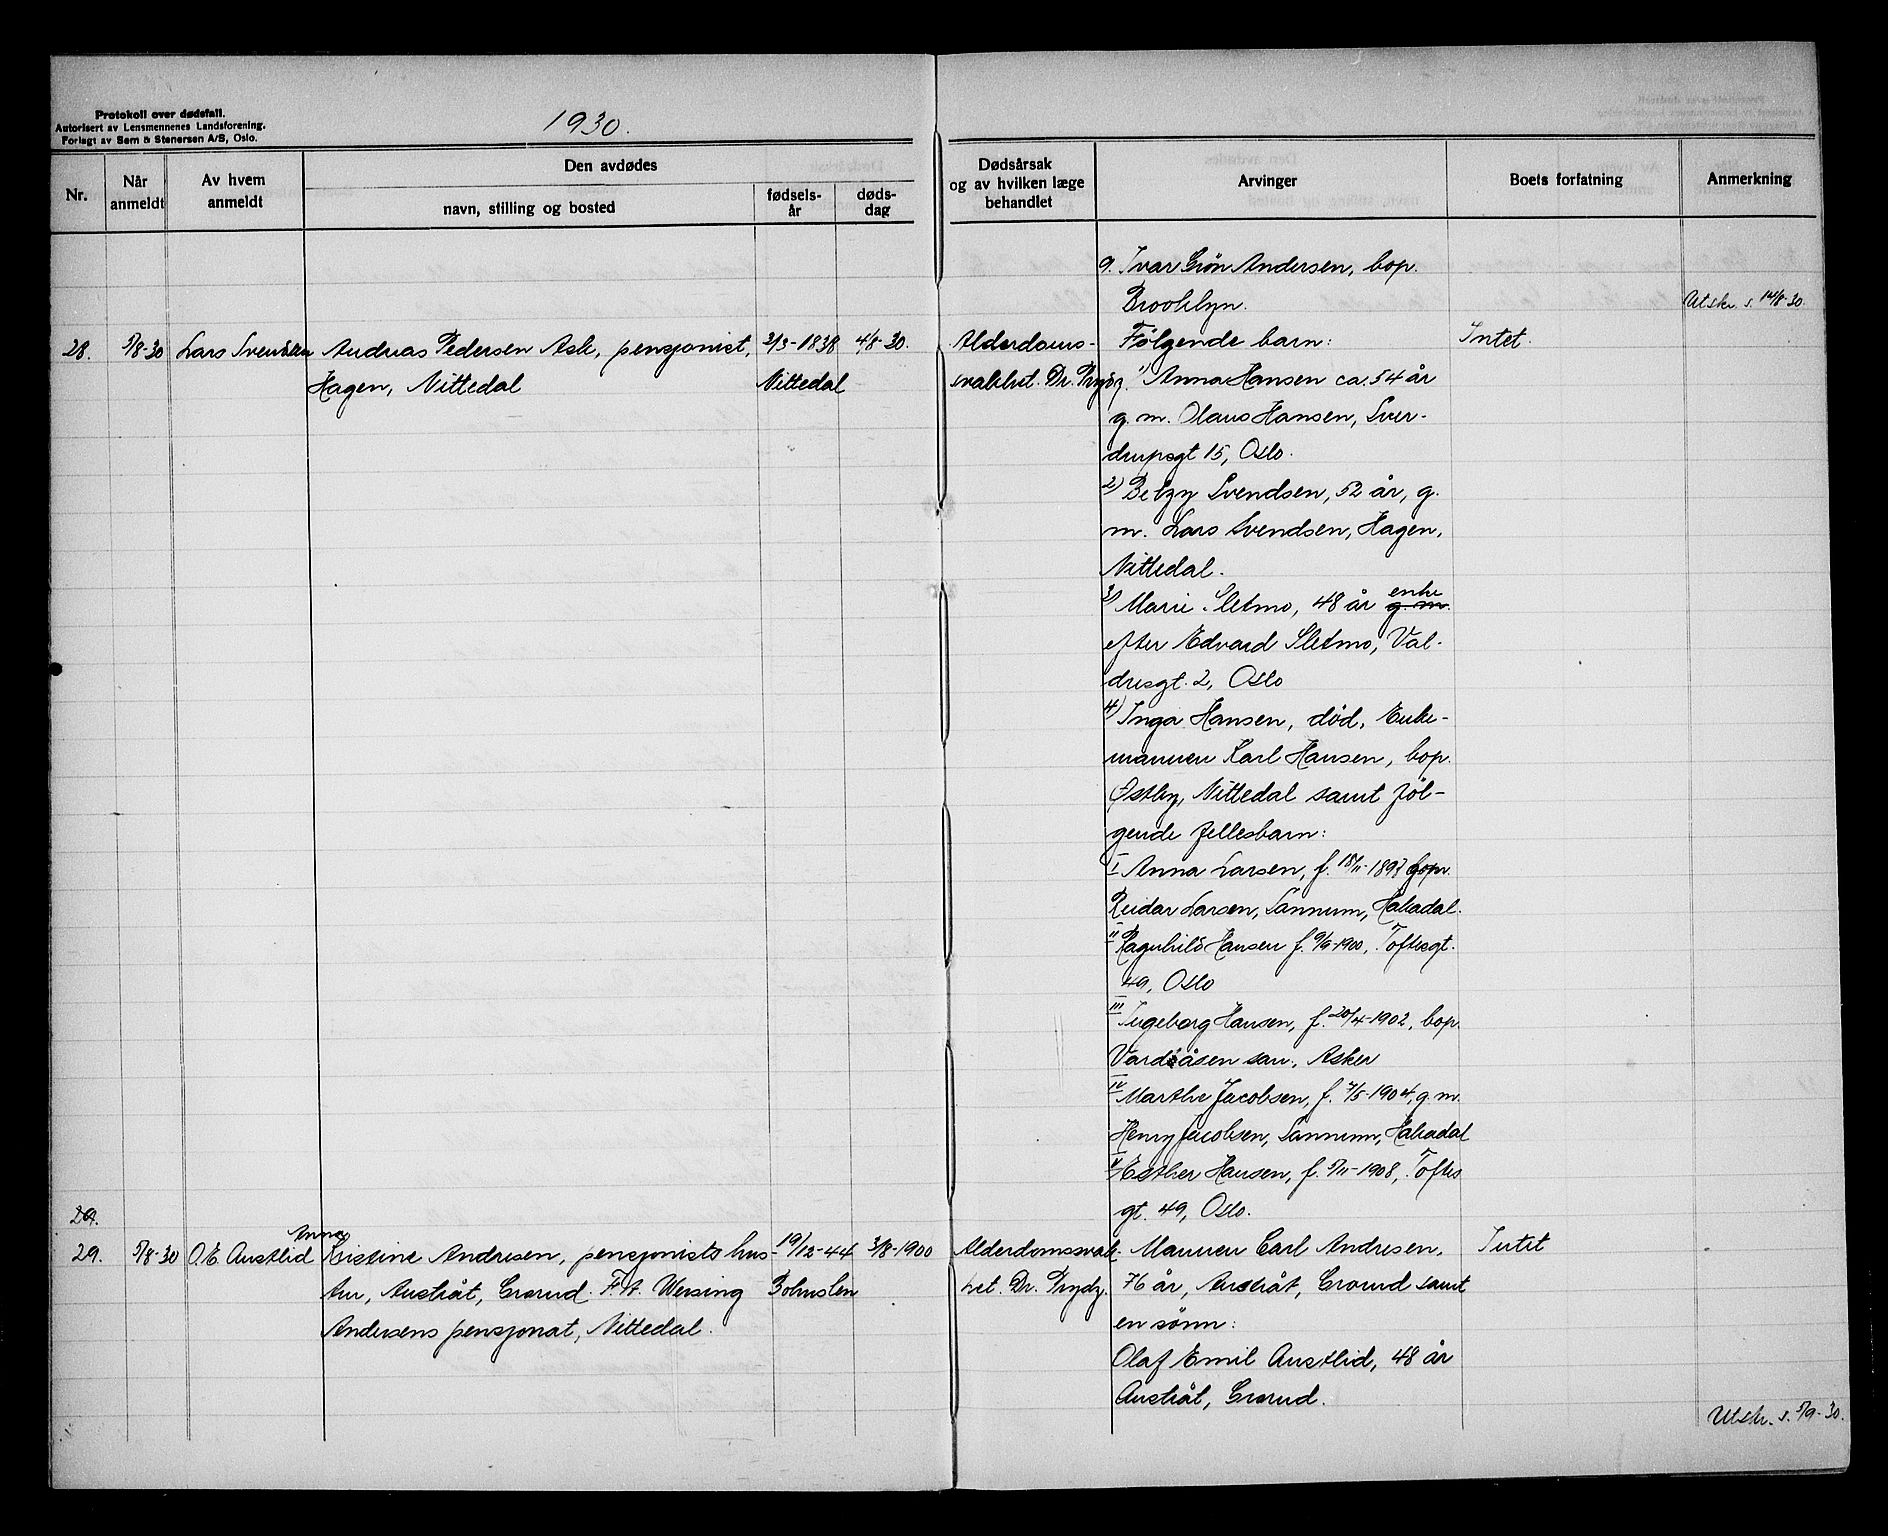 Protokoll over dødsfall.
Autorisert av Lensmennenes Landsforening.
Forlagt av Sem & Stenersen A/S, Oslo.
1930.
Nr.
Når anmeldt
Av hvem anmeldt
Den avdødes
navn, stilling og bosted
fødsels-
år
døds-
dag
Dødsårsak
og av hvilken læge
behandlet
Arvinger
Boets forfatning
Anmerkning
9. Ivar Grön Andersen, bop.
Brooklyn.
Utskr. s. 14/8-30.
28.
5/8-30
Lars Svendsen
Andreas Pedersen Ask, pensjonist,
Hagen, Nittedal
2/3-1838
Nittedal
4/8-30.
Alderdoms-
svakhet. Dr. Prydz.
Følgende barn:
1) Anna Hansen ca. 54 år
g. m. Olaus Hansen, Sver-
drupsgt 15, Oslo.
2) Betzy Svendsen, 52 år, g.
m. Lars Svendsen, Hagen,
Nittedal.
3) Marie Sletmo, 48 år g. m. enke
efter Edvard Sletmo, Val-
dresgt. 2, Oslo
4) Inga Hansen, død, Enke-
mannen Karl Hansen, bop.
Østby, Nittedal samt föl-
gende fellesbarn:
I Anna Larsen, f. 18/11-1897
Reidar Larsen, Sannum, Hakadal.
II Ragnhild Hansen f. 9/9-1900, Toftesgt.
49, Oslo
III Ingeborg Hansen, f. 20/4-1902, bop.
Vardåsen san., Asker
IV Marthe Jacobsen, f. 7/5-1904, g. m.
Henry Jacobsen, Sannum, Hakadal
V Esther Hansen, f. 5/11-1908, Toftes
gt. 49, Oslo.
Intet.
29.
29.
5/8-30
O. E. Austlid
Anna
Kristine Andresen, pensjonists hus-
tru, Austråt, Grorud. F. t. Wessing
Andersens pensjonat, Nittedal.
19/12-44
Bohuslen
3/8-1900
Alderdomssvak-
het. Dr. Prydz.
Mannen Carl Andresen,
76 år, Austråt, Grorud samt
en sönn:
Olaf Emil Austlid, 48 år
Austråt, Grorud.
Intet
Utskr. s. 5/9-30.